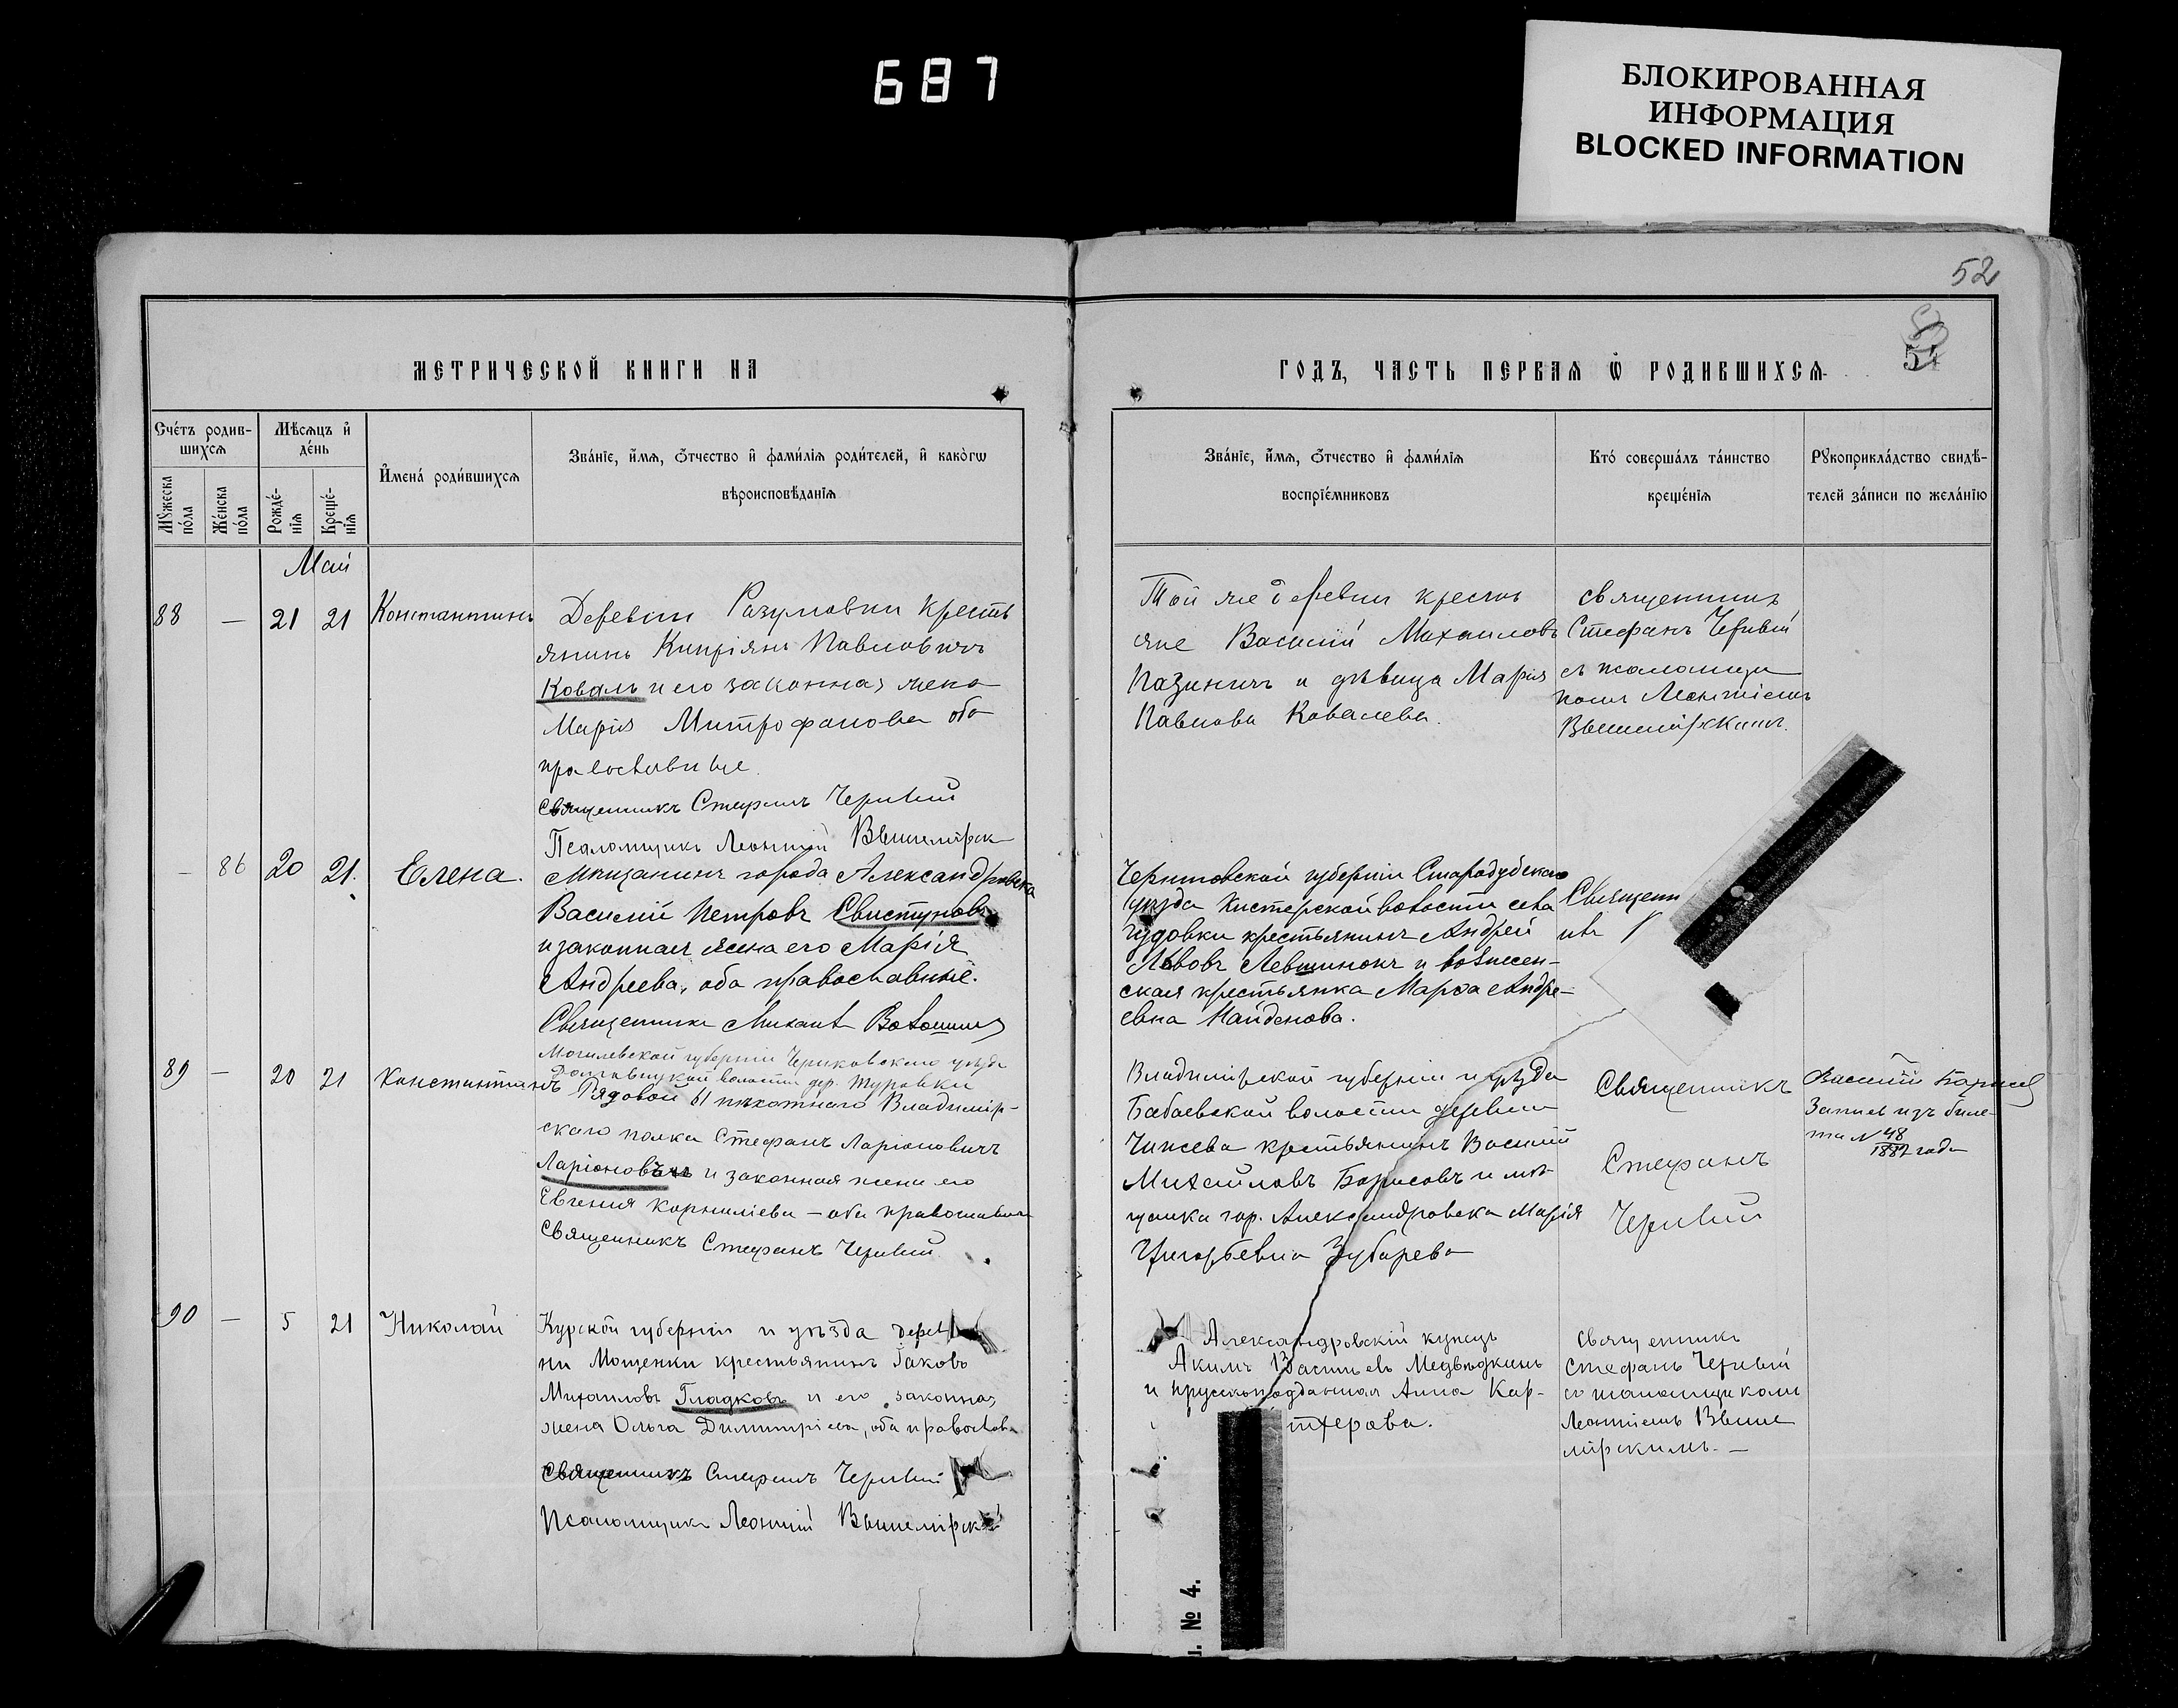 687
БЛОКИРОВАННАЯ
ИНФОРМАЦИЯ
BLOCKED INFORMATION
52
54
МЕТРИЧЕСКОЙ КНИГИ НА
ГОДЪ, ЧАСТЬ ПЕРВАѦ Ѿ РОДИВШИХСѦ
Счётъ родив-
шихсѧ
Мѣсѧцъ и
день
Имена родившихсѧ
Званіе, имѧ, отчество и фамиліѧ родителей, и какогѡ
вѣроисповѣданіѧ
Мужеска
пола
Женска
пола
Рожде-
ніѧ
Креще-
ніѧ
Званіе, имѧ, отчество и фамиліѧ
воспріемниковъ
Кто совершалъ таинство
крещеніѧ
Рукоприкладство свидѣ-
телей записи по желанію
Май
88 — 21 21 Константинъ
Деревни Разумовки кресть
янинъ Кипріянъ Павловичъ
Коваль и его законная жена
Марія Митрофанова оба
православные.
Священникъ Стефанъ Черивій
Псаломщикъ Леонтій Вышемірск
Той же деревни кресть
яне Василій Михаиловъ
и дѣвица Марія
Павлова Ковалева.
священникъ
Стефанъ Черивій
съ псаломщи
комъ Леонтіемъ
Вышемірскимъ.
— 86 20 21. Елена.
Мѣщанинъ города Александровска
Василій Петровъ Свистуновъ
и законная жена его Марія
Андреева, оба православные.
Священникъ Михаилъ Волошинъ
Черниговской губерніи Стародубскаго
уѣзда Кистерской волости села
Гудовки крестьянинъ Андрей
Львовъ Левшинокъ и вознесен-
ская крестьянка Марѳа Андре-
евна Найденова.
Священн
икъ
89 — 20 21 Константинъ
Могилевской губерніи Чериковскаго уѣзда
волости дер. Туровки
Рядовой 61 пѣхотнаго Владимір-
скаго полка Стефанъ Ларіоновичъ
Ларіоновъ и законная жена его
Евгенія Корниліева — оба православные
Священникъ Стефанъ Черивій.
Владимірской губерніи и уѣзда
Бабаевской волости деревни
крестьянинъ Василій
Михайловъ Борисовъ и мѣ-
щанка гор. Александровска Марія
Григорьевна Зубарева
Священникъ
Стефанъ
Черивій
Василій Борисовъ
Запись изъ биле-
та № 48
1887 года
90 — 5 21 Николай
Курской губерніи и уѣзда дерев
ни Мощенки крестьянинъ Іаковъ
Михаиловъ Гладковъ и его законная
жена Ольга Димитріева, оба православн.
Священникъ Стефанъ Черивій
Псаломщикъ Леонтій Вышемірскій
Александровскій купецъ
Акимъ Васильевъ Медвѣдкинъ
и прусскоподданная Анна Кар-
терова.
священникъ
Стефанъ Черивій
съ псаломщикомъ
Леонтіемъ Выше
мірскимъ. —
№ 4.